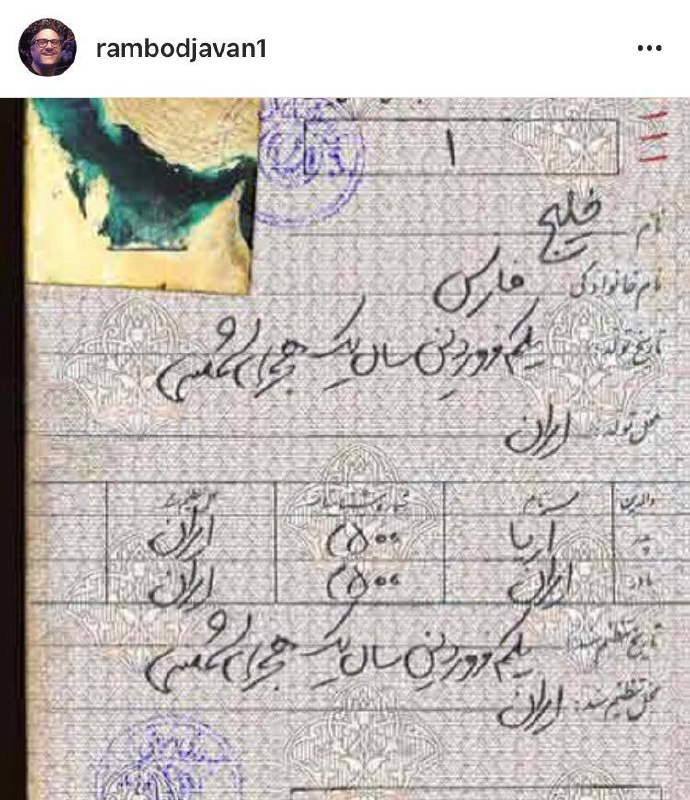 rambodjavan1
۱
نام خلیج
نام خانوادگی فارس
تاریخ تولد: یکم فروردین سال یک هجرای شمسی
محل تولد: ایران
والدین نام شماره شناسنامه
پدر آریا ۲۵۰۰ ایران
مادر ایران ۲۵۰۰ ایران
تاریخ تنظیم سند: یکم فروردین سال یک هجرای شمسی
محل تنظیم سند: ایران